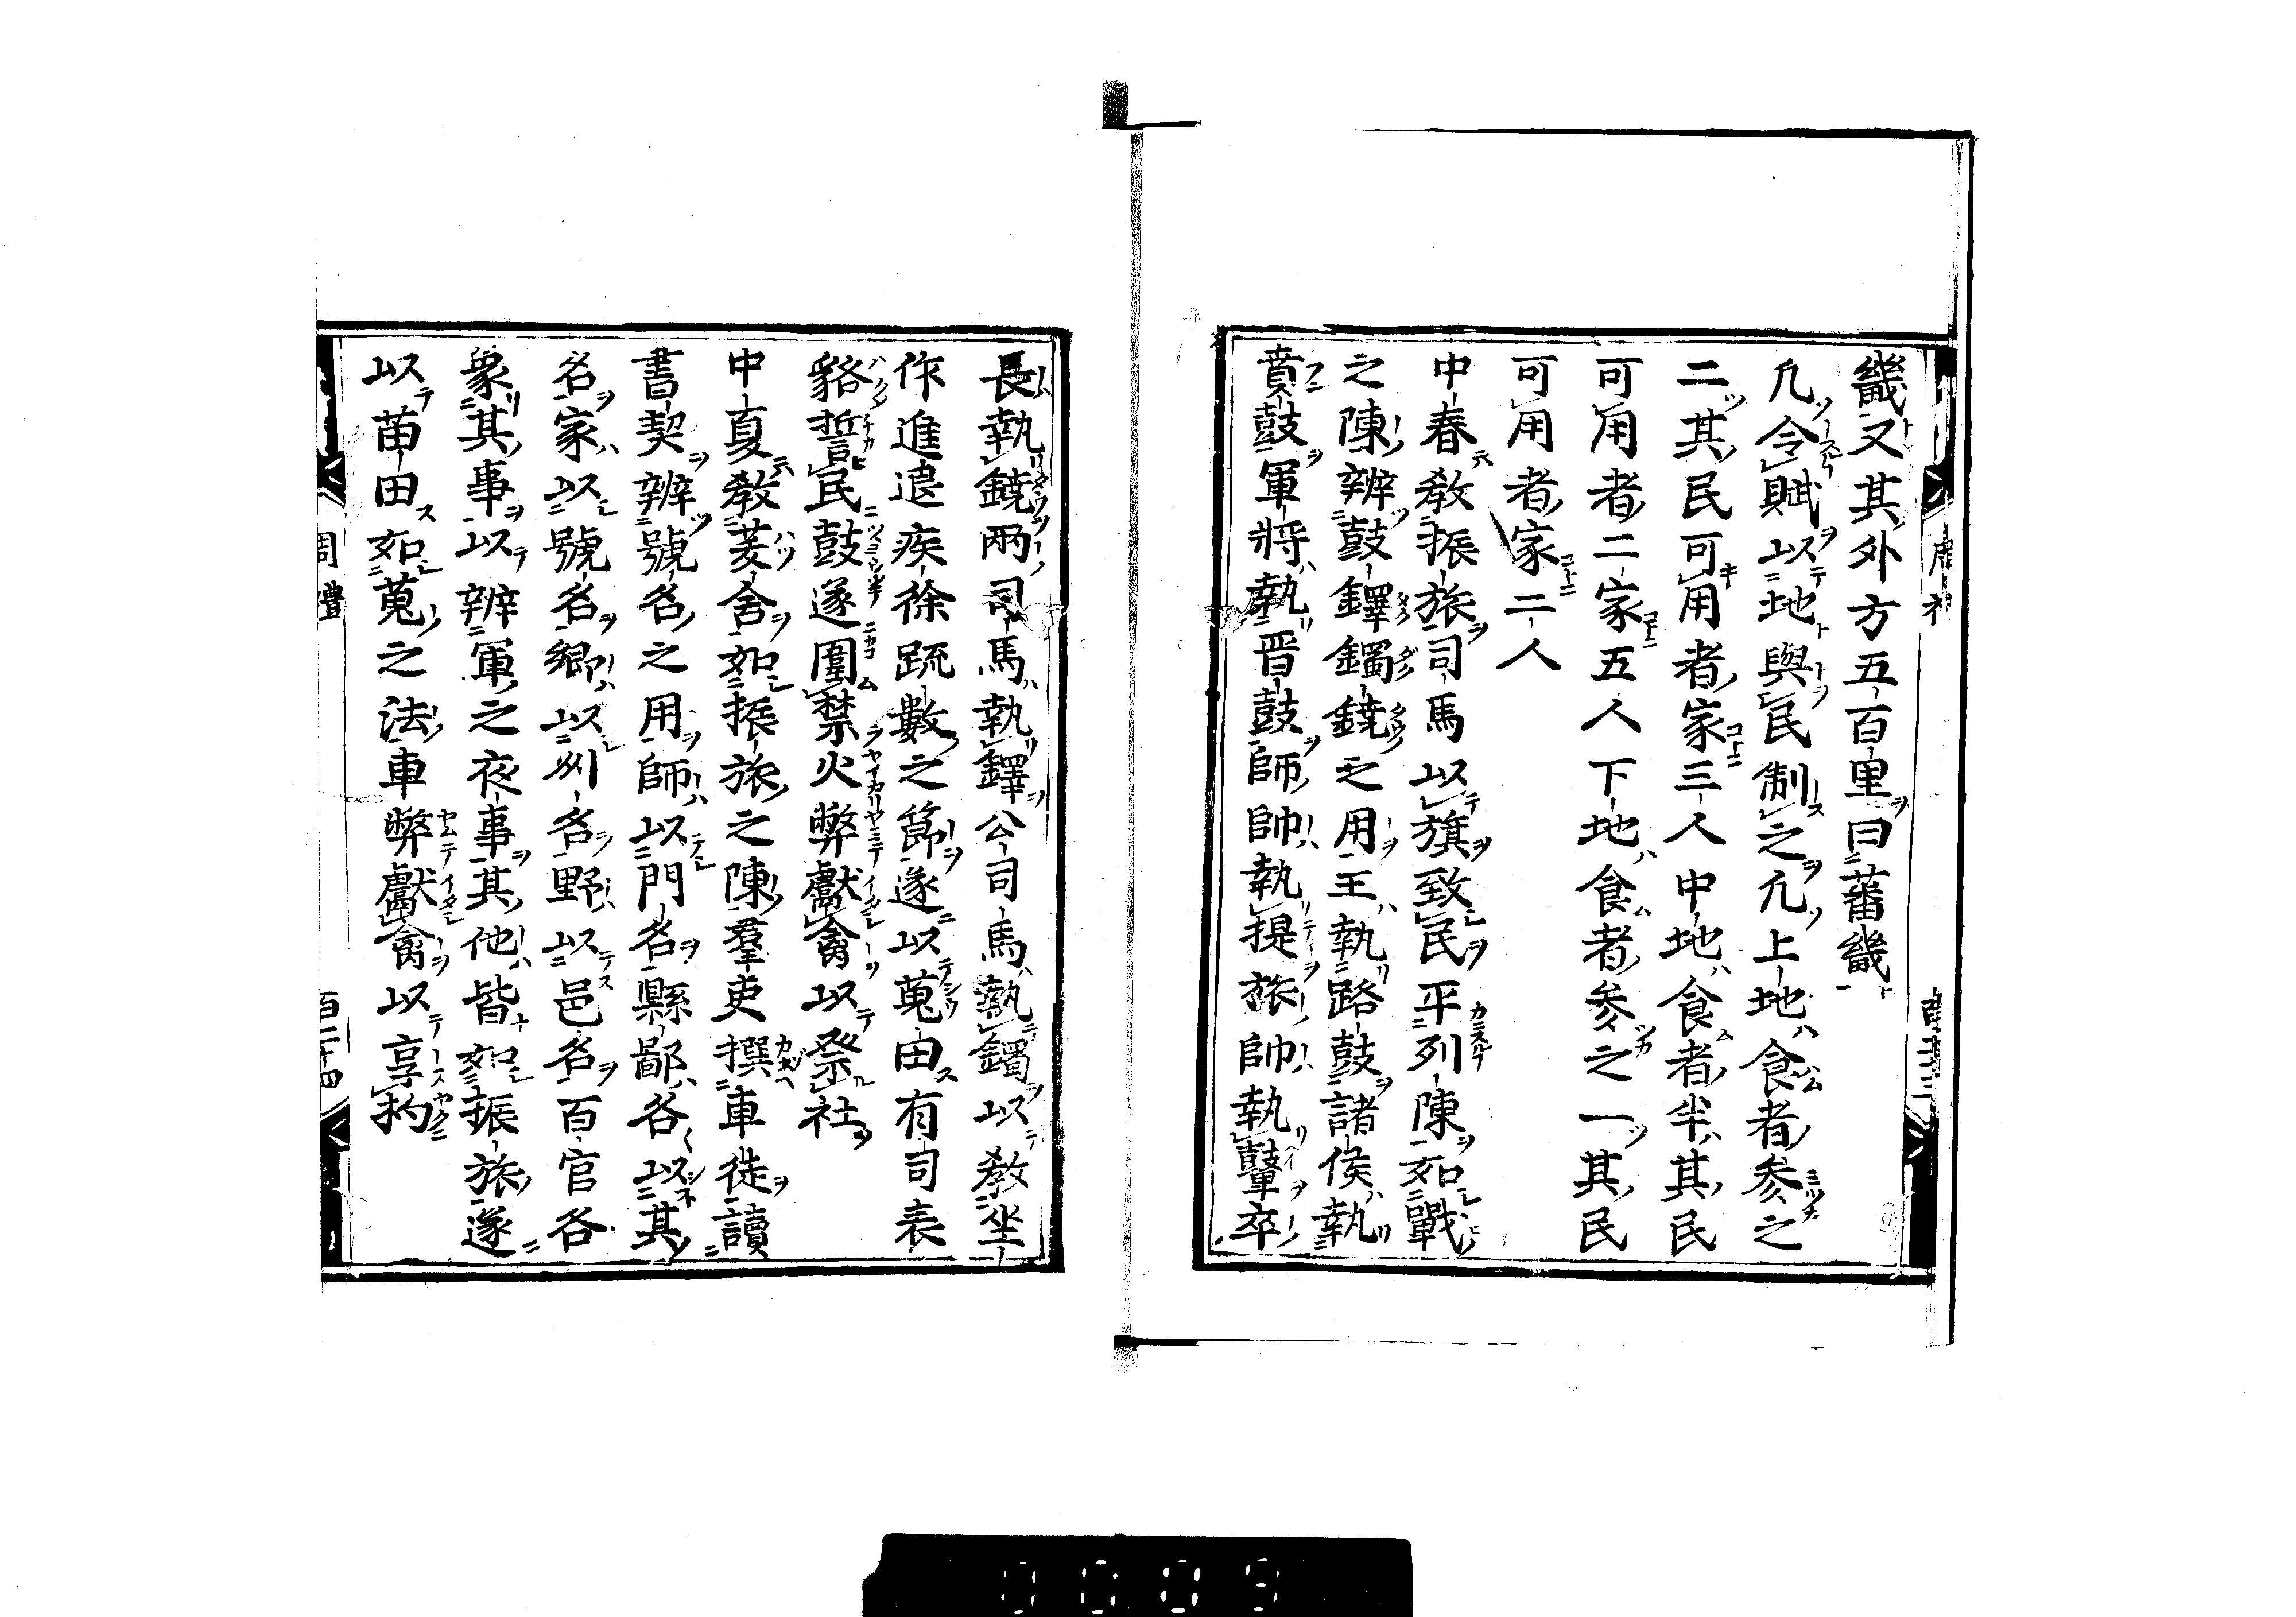 畿又其外方五百里曰蕃畿
凢令賦以地與民制之凢上地食者参之
二其民可用者家三人中地食者半其民
可用者二家五人下地食者参之一其民
可用者家二人
中春敎振旅司馬以旗致民平列陳如戰
之陳辨鼓鐸鐲鐃之用王執路鼓諸侯執
賁鼓軍將執晋鼓師帥執提旅帥執鼙卒
長執鐃兩司馬執鐸公司馬執鐲以敎坐
作進退疾徐踈數之節遂以蒐田有司表
貉誓民鼓遂圍禁火弊獻禽以祭社
中夏敎茇舍如振旅之陳羣吏撰車徒讀
書契辨號名之用師以門名縣鄙各以其
名家以號名鄉以州名野以邑名百官各
象其事以辨軍之夜事其他皆如振旅遂
以苗田如蒐之法車弊獻禽以享礿
周禮
百二十四
0009